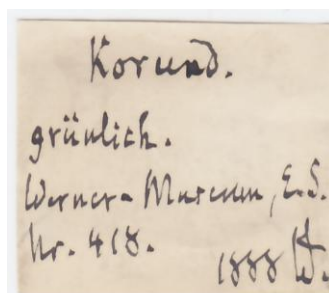 Korund.
grünlich.
Werner-Museum, E.S.
Nr. 418.
1888